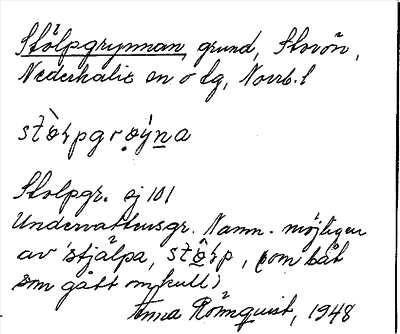 Stölpgrynnan, grund, Storön,
Nederkalix sn o lg, Norrb. l
Stolpgr. ej 101
Undervattensgr. Namn. möjligen
av stjälpa, (om båt
som gått omkull)
Anna Rönnquist, 1948